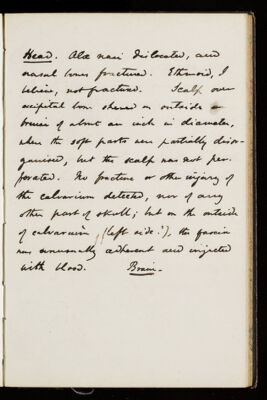 Head. Alæ nasi dislocated, and
nasal bones fractured. Ethmoid, I
believe, not fractured. Scalp over
occipital bone showed on outside a
bruise of about an inch in diameter,
where the soft parts were partially disor-
ganised, but the scalp was not per-
forated. No fracture or other injury of
the calvarium detected, nor of any
other part of skull; but on the outside
of calvarium, (left side?), the fascia
was unusually adherent and injected
with blood. Brain.